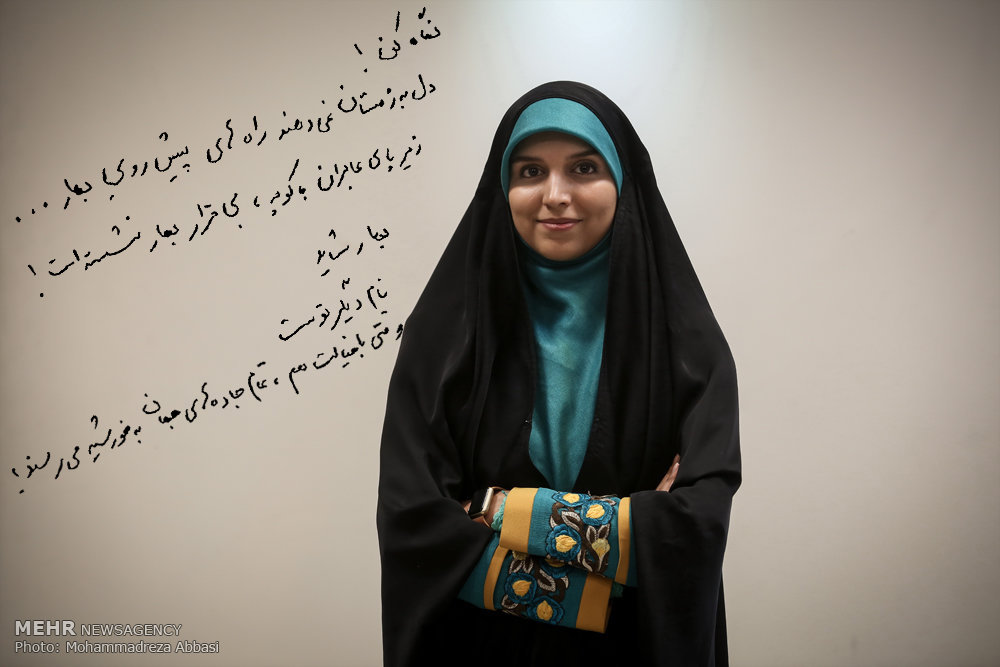 نگاه کن !
دل به زمستان نمی دهند راه های پیش روی بهار ...
زیر پای عابران هر کوچه ، بی قرار بهار نشسته است !
بهار شاید
نام دیگر توست
وقتی با خیالت ، تمام جاده های جهان به خورشید می رسند ،
MEHR NEWSAGENCY
Photo: Mohammadreza Abbasi